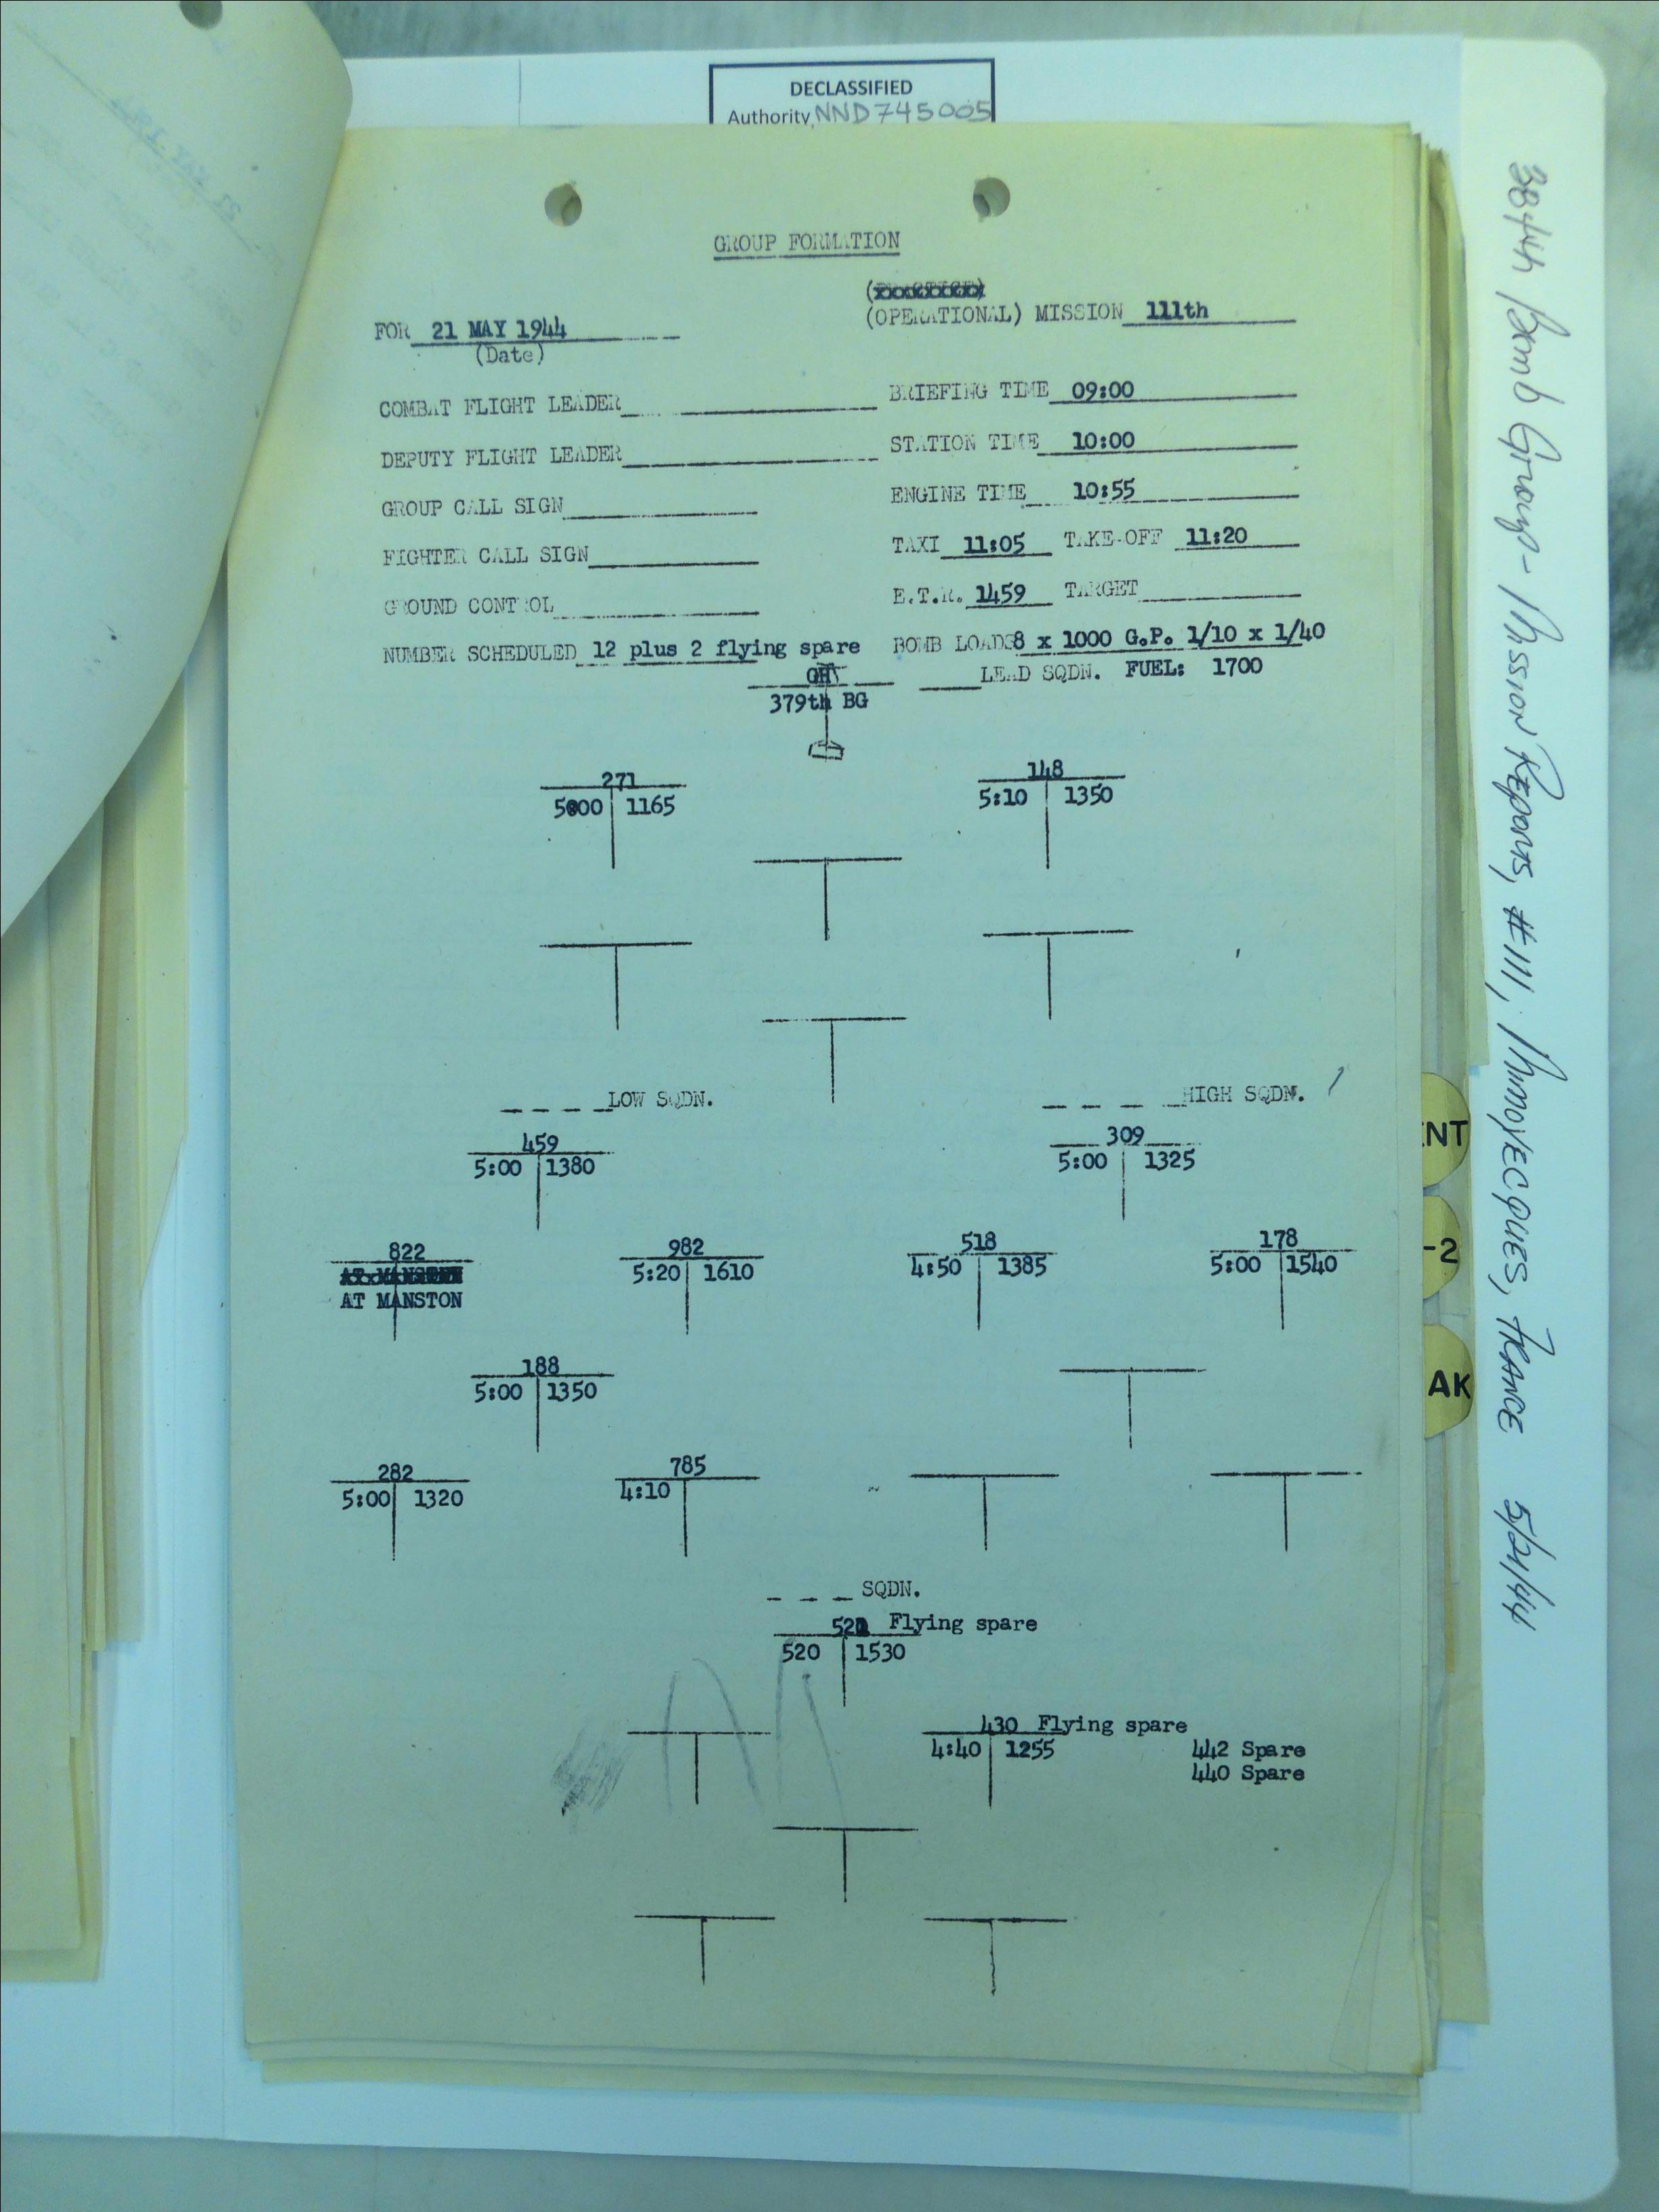 DECLASSIFIED
Authority NND745005
GROUP FORMATION
(OPERATIONAL) MISSION 111th
FOR 21 MAY 1944
(Date)
COMBAT FLIGHT LEADER
BRIEFING TIME 09:00
DEPUTY FLIGHT LEADER
STATION TIME 10:00
GROUP CALL SIGN
ENGINE TIME 10:55
FIGHTER CALL SIGN
TAXI 11:05 TAKE-OFF 11:20
GROUND CONTROL
E.T.R. 1459 TARGET
NUMBER SCHEDULED 12 plus 2 flying spare
BOMB LOADS 8 x 1000 G.P. 1/10 x 1/40
GH
LEAD SQDN. FUEL: 1700
379th BG
271
5:00 1165
148
5:10 1350
LOW SQDN.
HIGH SQDN.
459
5:00 1380
309
5:00 1325
822
AT MANSTON
AT MANSTON
982
5:20 1610
518
4:50 1385
178
5:00 1540
188
5:00 1350
282
5:00 1320
785
4:10
SQDN.
Flying spare
520 1530
430 Flying spare
4:40 1255
442 Spare
440 Spare
384th Bomb Group - Mission Reports, #111, MIMOYECQUES, FRANCE 5/21/44
NT
-2
AK